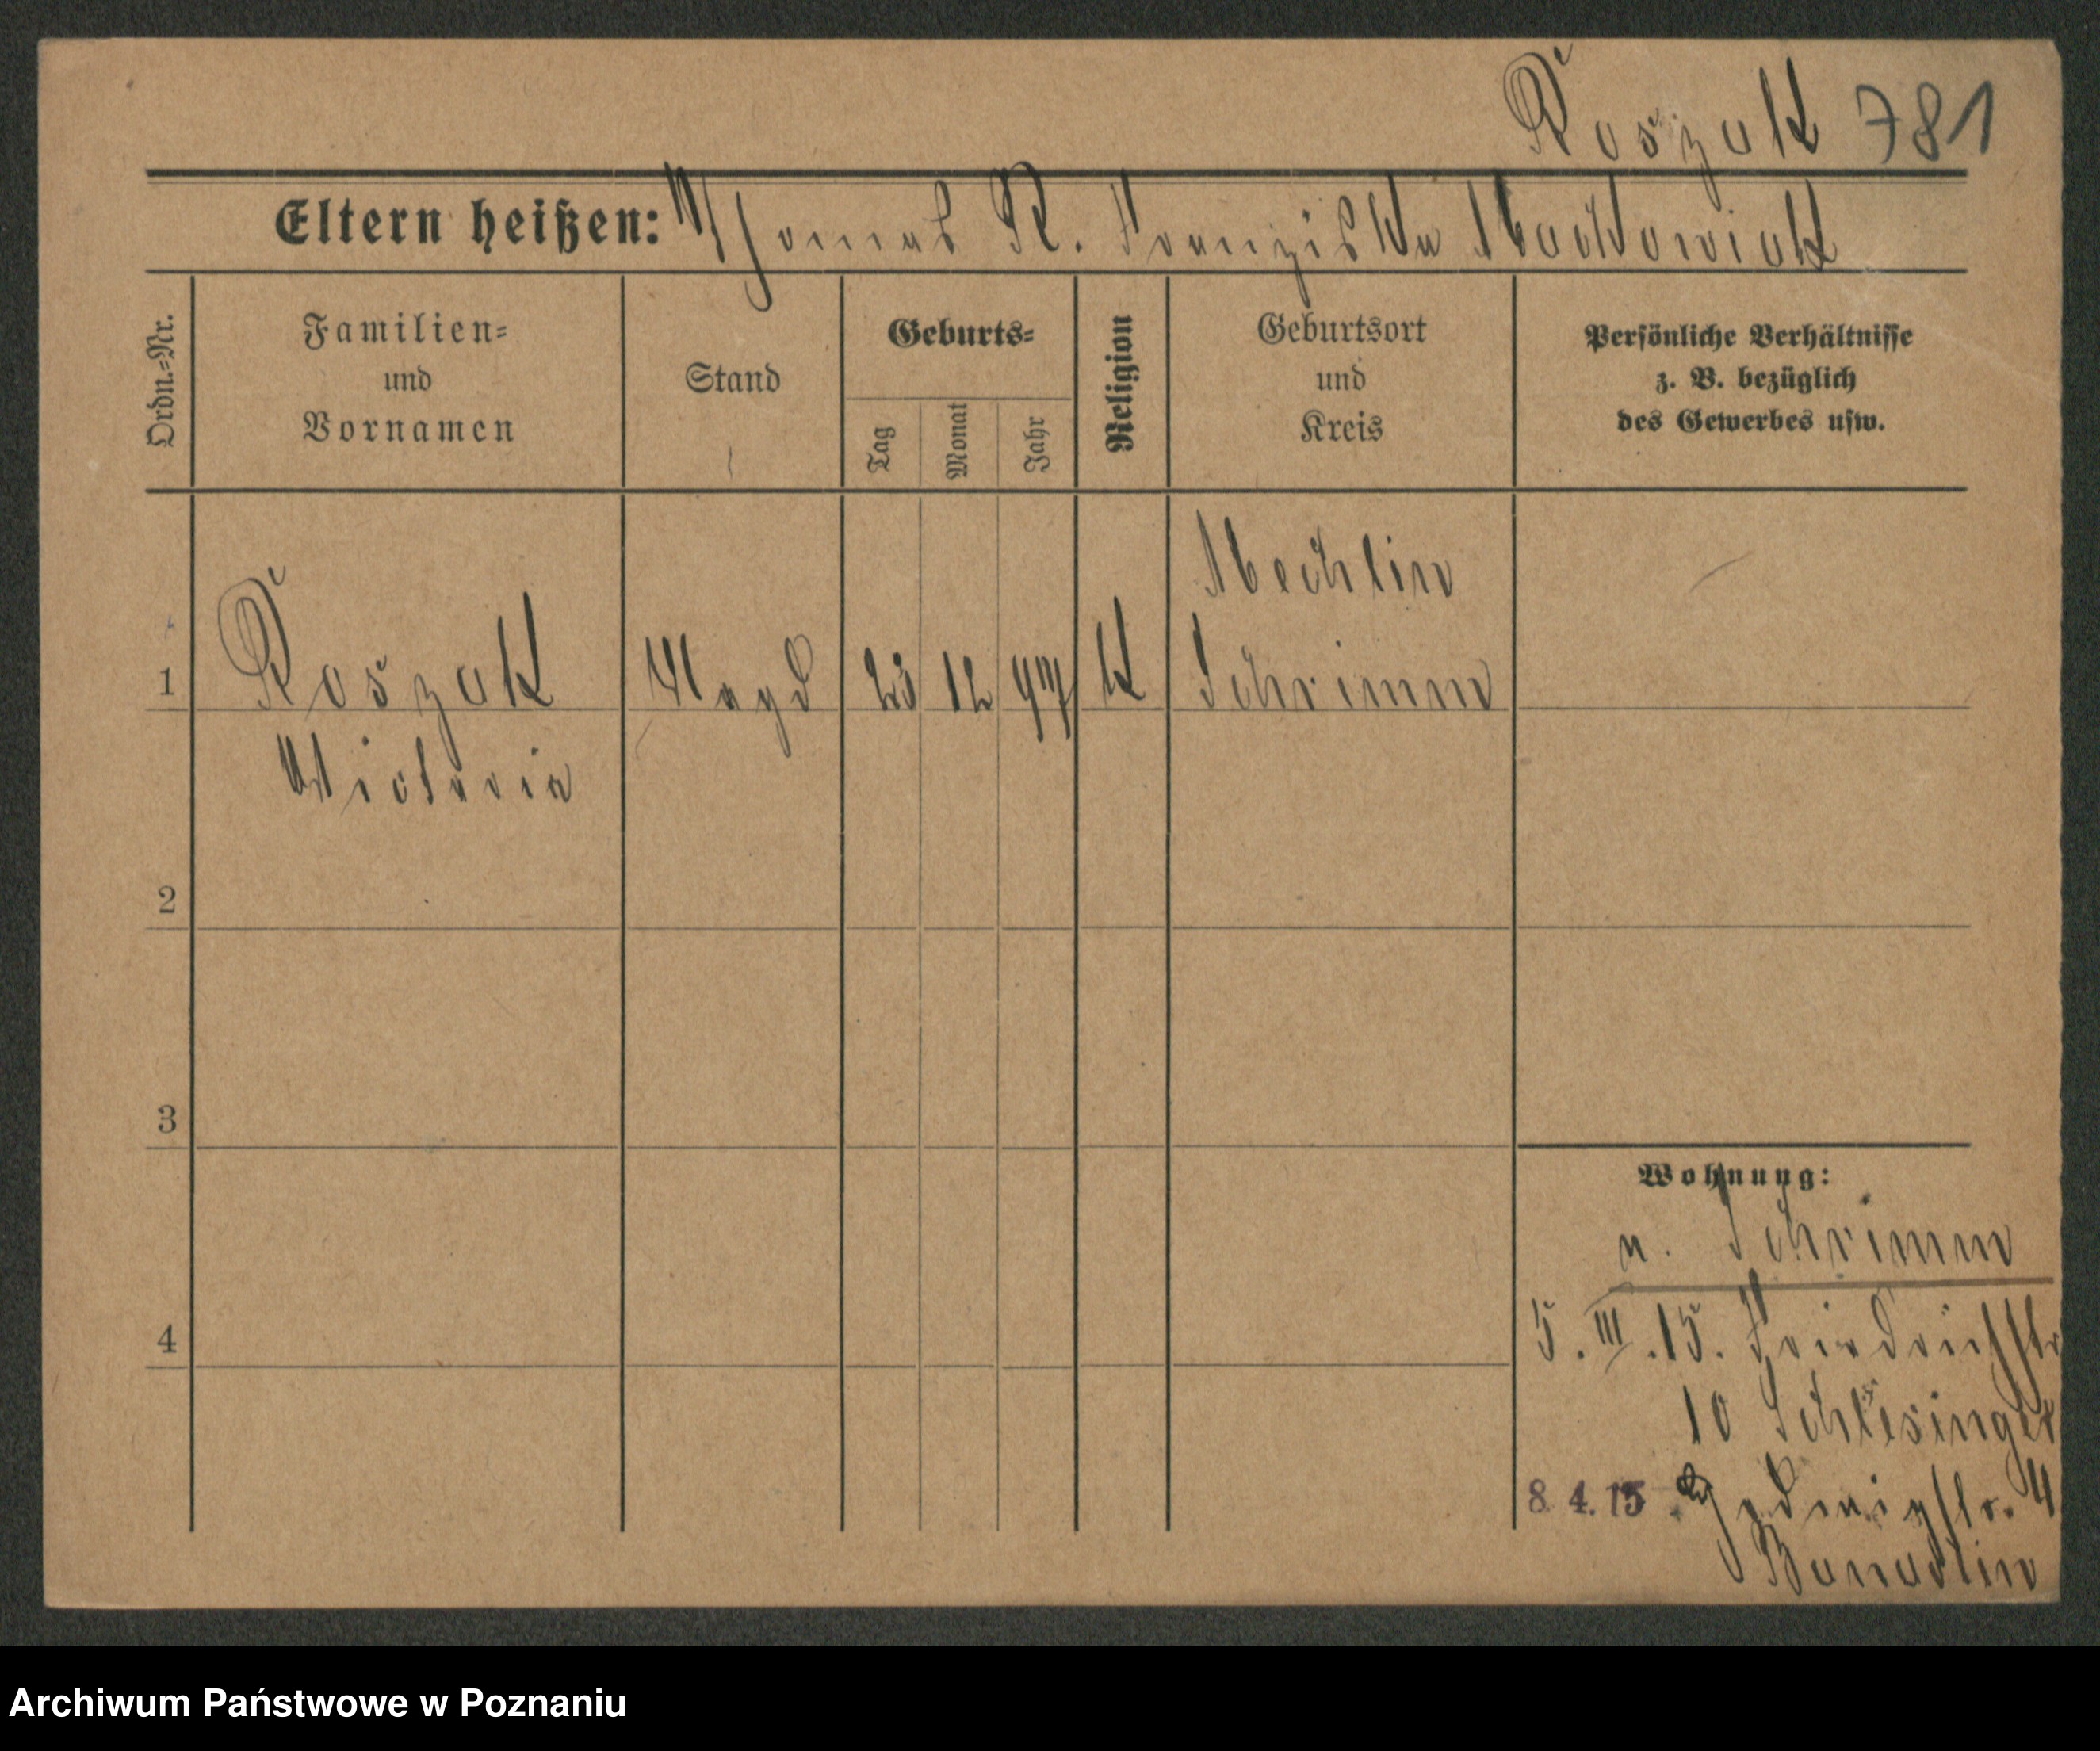 Roszak 781
Eltern heißen: Thomas R. Franziska Maćkowiak
Ordn.=Nr.
Familien=
und
Vornamen
Stand
Geburts=
Tag
Monat
Jahr
Religion
Geburtsort
und
Kreis
Persönliche Verhältnisse
z. B. bezüglich
des Gewerbes usw.
Mechlin
1 Roszak Magd 23 12 97 K Schrimm
Victoria
2
3
Wohnung:
n. Schrimm
4 5. III. 15. Friedrichstr
10 Schlesinger
8. 4. 15 Hedwigstr. 4
Archiwum Państwowe w Poznaniu